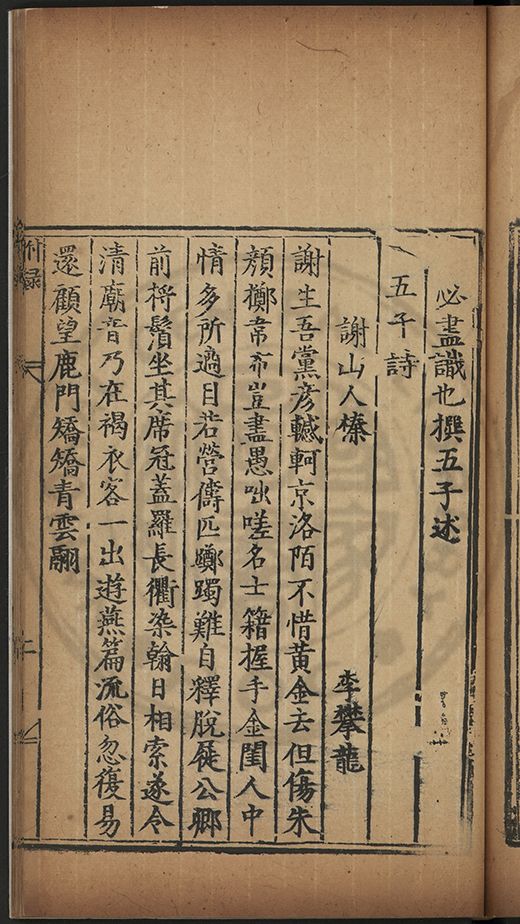 必盡識也撰五子述
五子詩
謝山人榛
李攀龍
謝生吾黨彥轗軻京洛陌不惜黃金去但傷朱
顏擲韋布豈盡愚咄嗟名士籍握手金閨人中
情多所適日若營儔匹躑躅難自釋脫屣公卿
前捋鬚坐其席冠蓋羅長衢染翰日相索遂令
清廟音乃在褐衣客一出遊燕篇流俗忽復易
還顧望鹿門矯矯青雲翮
附錄
二